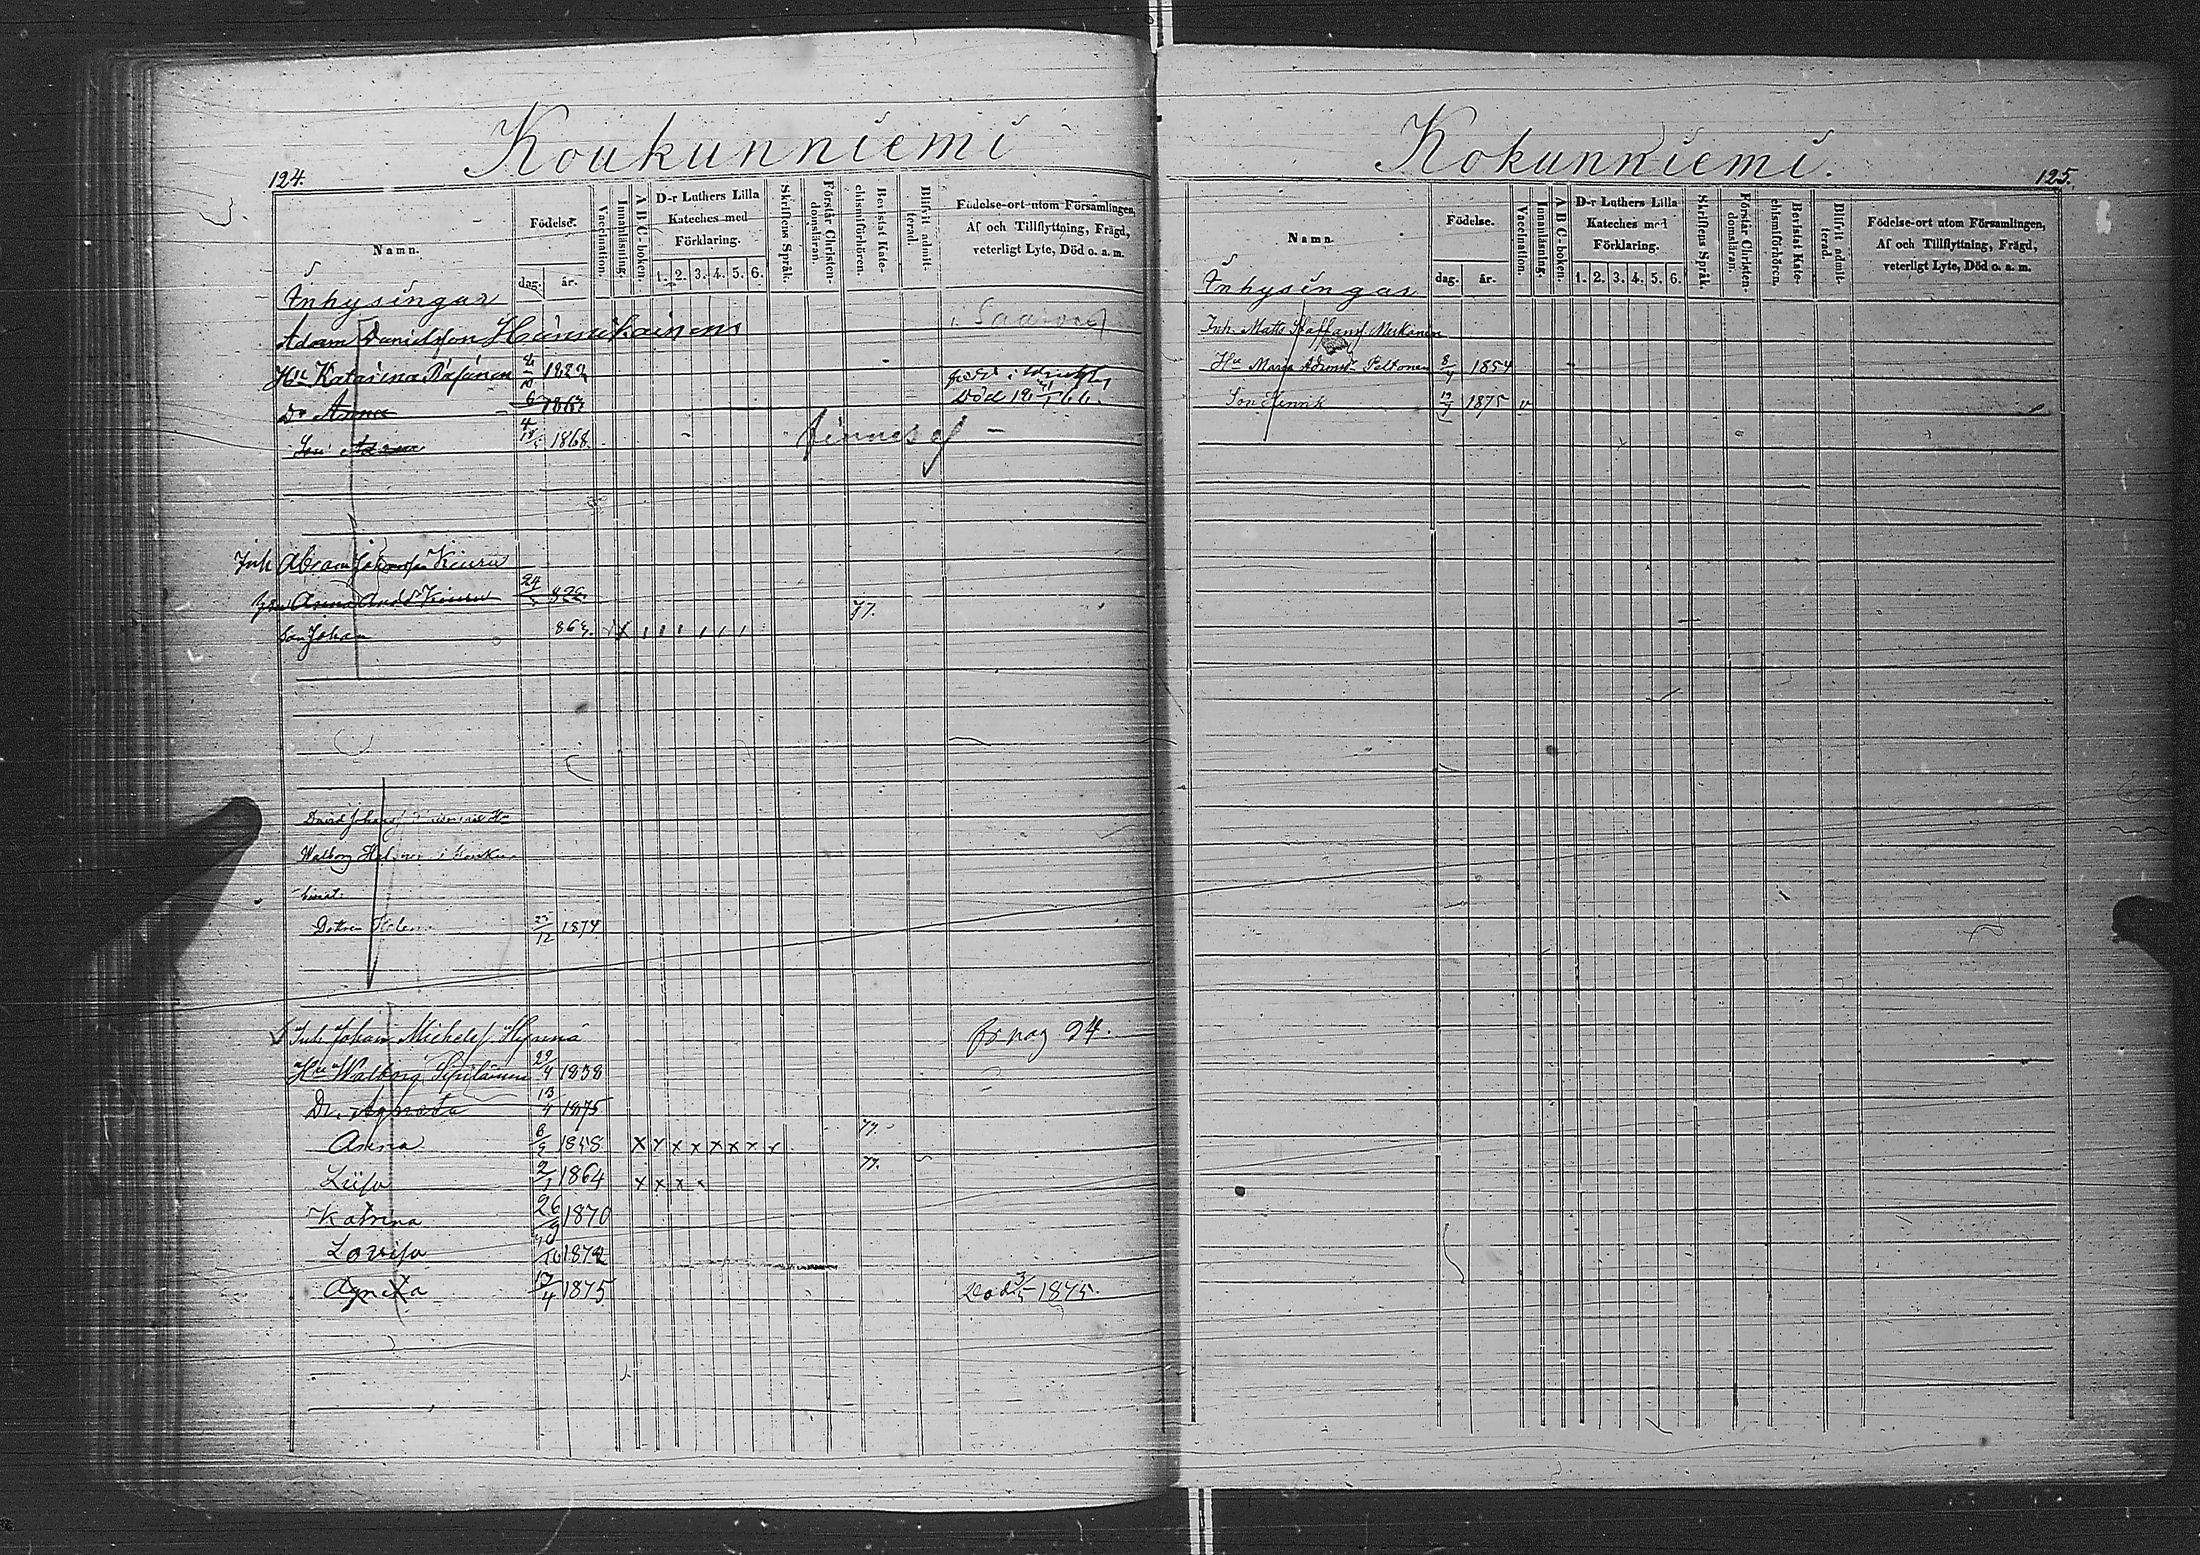 Koukunniemi
124.
Namn.
Födelse.
dag.
år.
Vaccination.
Innanläsning.
A B C-boken.
D-r Luthers Lilla
Kateches med
Förklaring.
1. 2. 3. 4. 5. 6.
Skriftens Språk.
Förstår Christen-
domsläran.
Bevistat Kate-
chismiförhören.
Blifvit admit-
terad.
Födelse-ort utom Församlingen,
Af och Tillflyttning, Frägd,
veterligt Lyte, Död o. a. m.
Inhysingar
Adam Danielsson
Hu Katarina Räsänen 1822
Dr Anna 6 1863 Död
Son Adam 4 1868 finnes ej
Inh Abram Johansson Kiuru
Anna And Kiuru 24 826
Son Johan 863 X 77.
David Johans
Walborg
Dottren Helena 12 1874
Inh Johan Michelss Hynnä fr pag 94.
Hu Walborg 29/4 1838
Dr. Agneta 13/4 1875
Anna 1858 x x x x x x x x 77.
Liisa 2/1 1864 x x x 77.
Katrina 26/9 1870
Lovisa 10 1872
Agneta 13/4 1875 Död 3/5 1875.
Kokunniemi.
125.
Namn
Födelse.
dag.
år.
Vaccination.
Innanläsning.
A B C-boken.
D-r Luthers Lilla
Kateches med
Förklaring.
1. 2. 3. 4. 5. 6.
Skriftens Språk.
Förstår Christen-
domsläran.
Bevistat Kate-
chismiförhören.
Blifvit admit-
terad.
Födelse-ort utom Församlingen,
Af och Tillflyttning, Frägd,
veterligt Lyte, Död o. a. m.
Inhysingar
Inh. Matts Staffanss Mukanen
Hu Maria Peltonen 8 1854
Son Henrik 1875 v